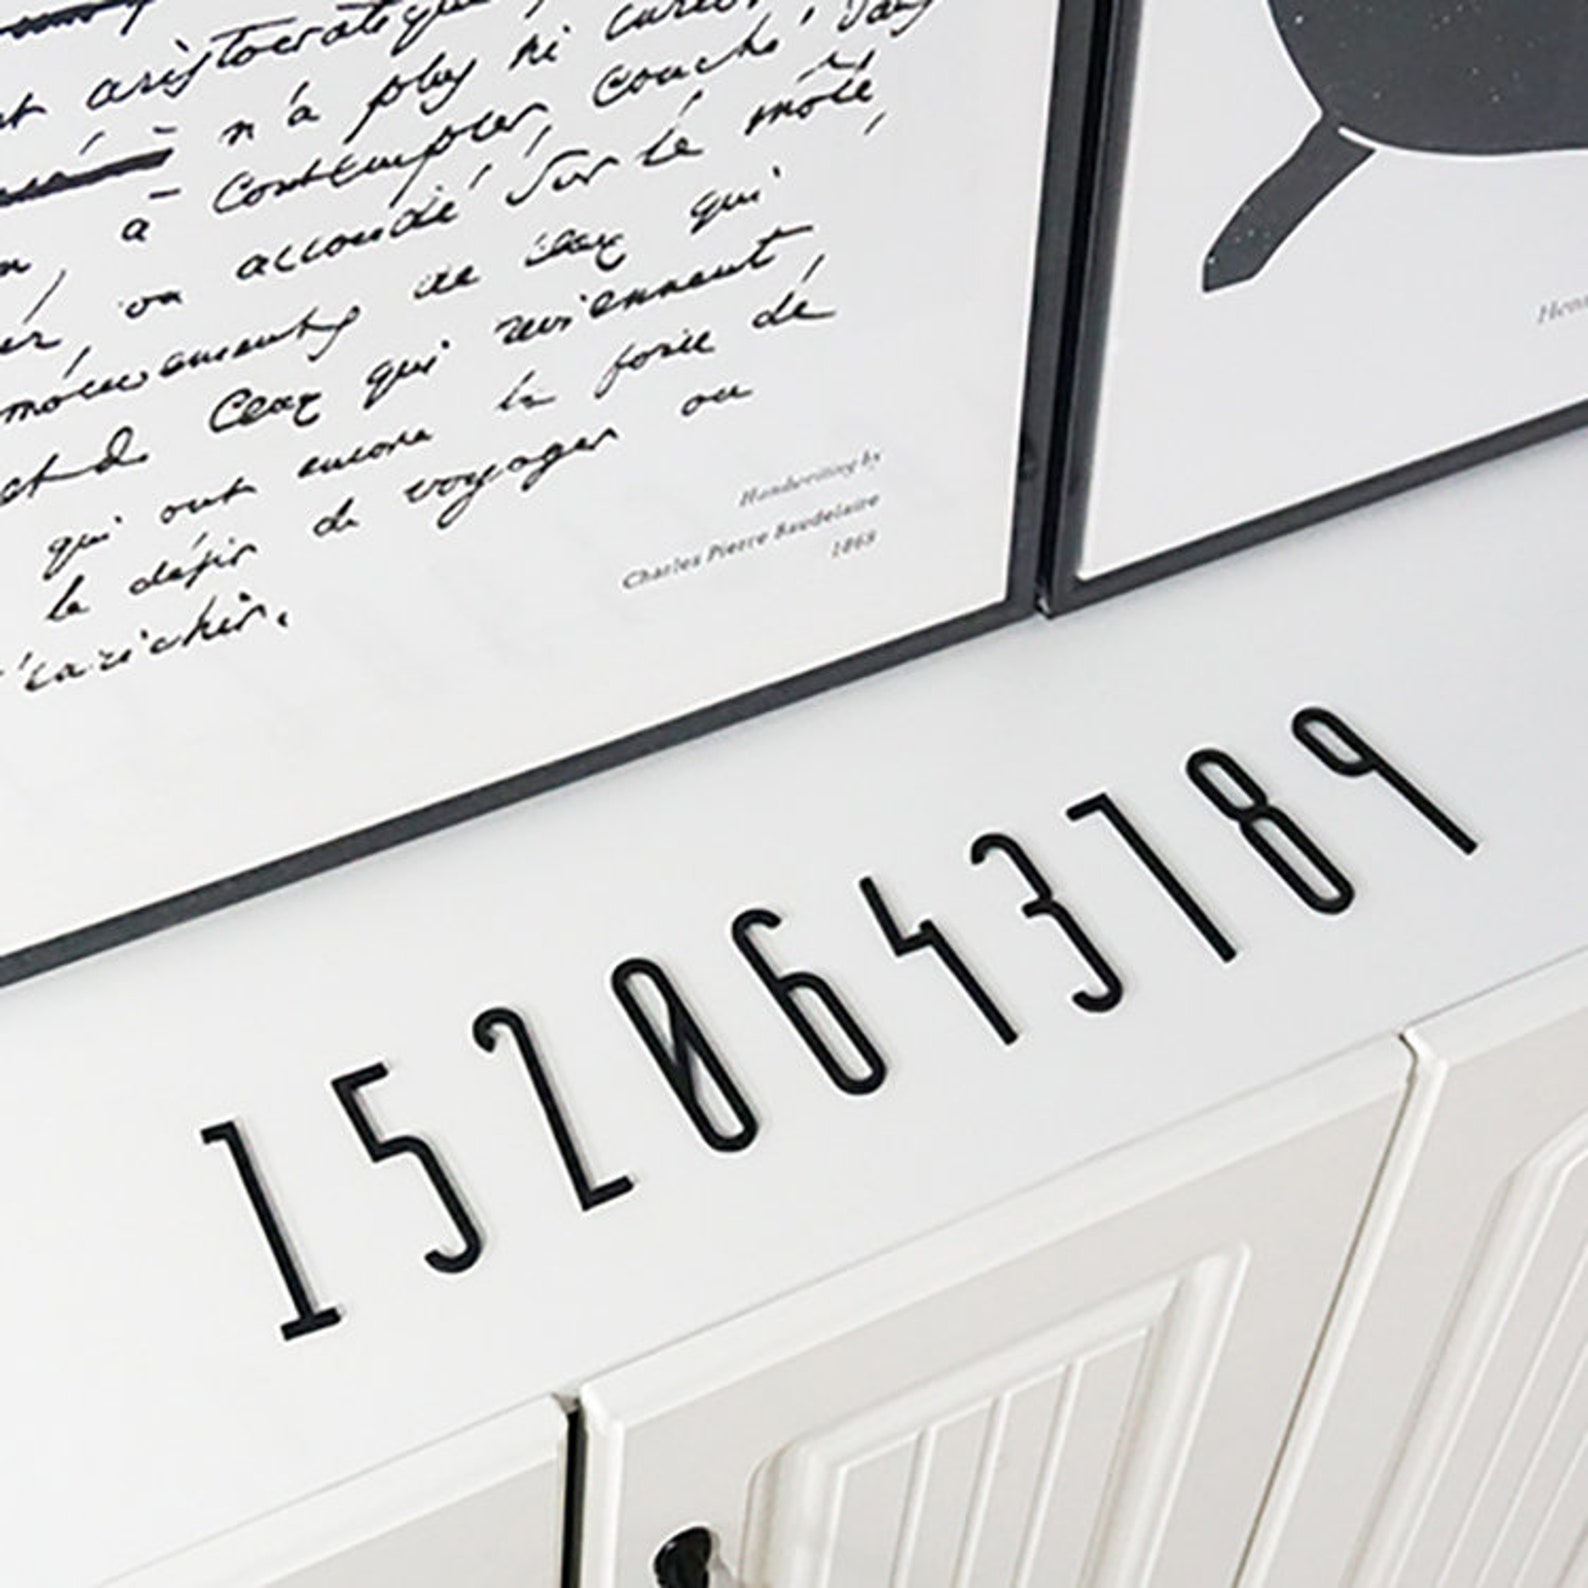 aristocratique,
n'a plus ni curio
à contempler, couché dans
ou accoudé sur le môle,
mouvements de ceux qui
et de ceux qui reviennent,
qui ont encore la force de
le désir de voyager ou
s'enrichir.
Handwriting by
Charles Pierre Baudelaire
1868
Henri
1520643789